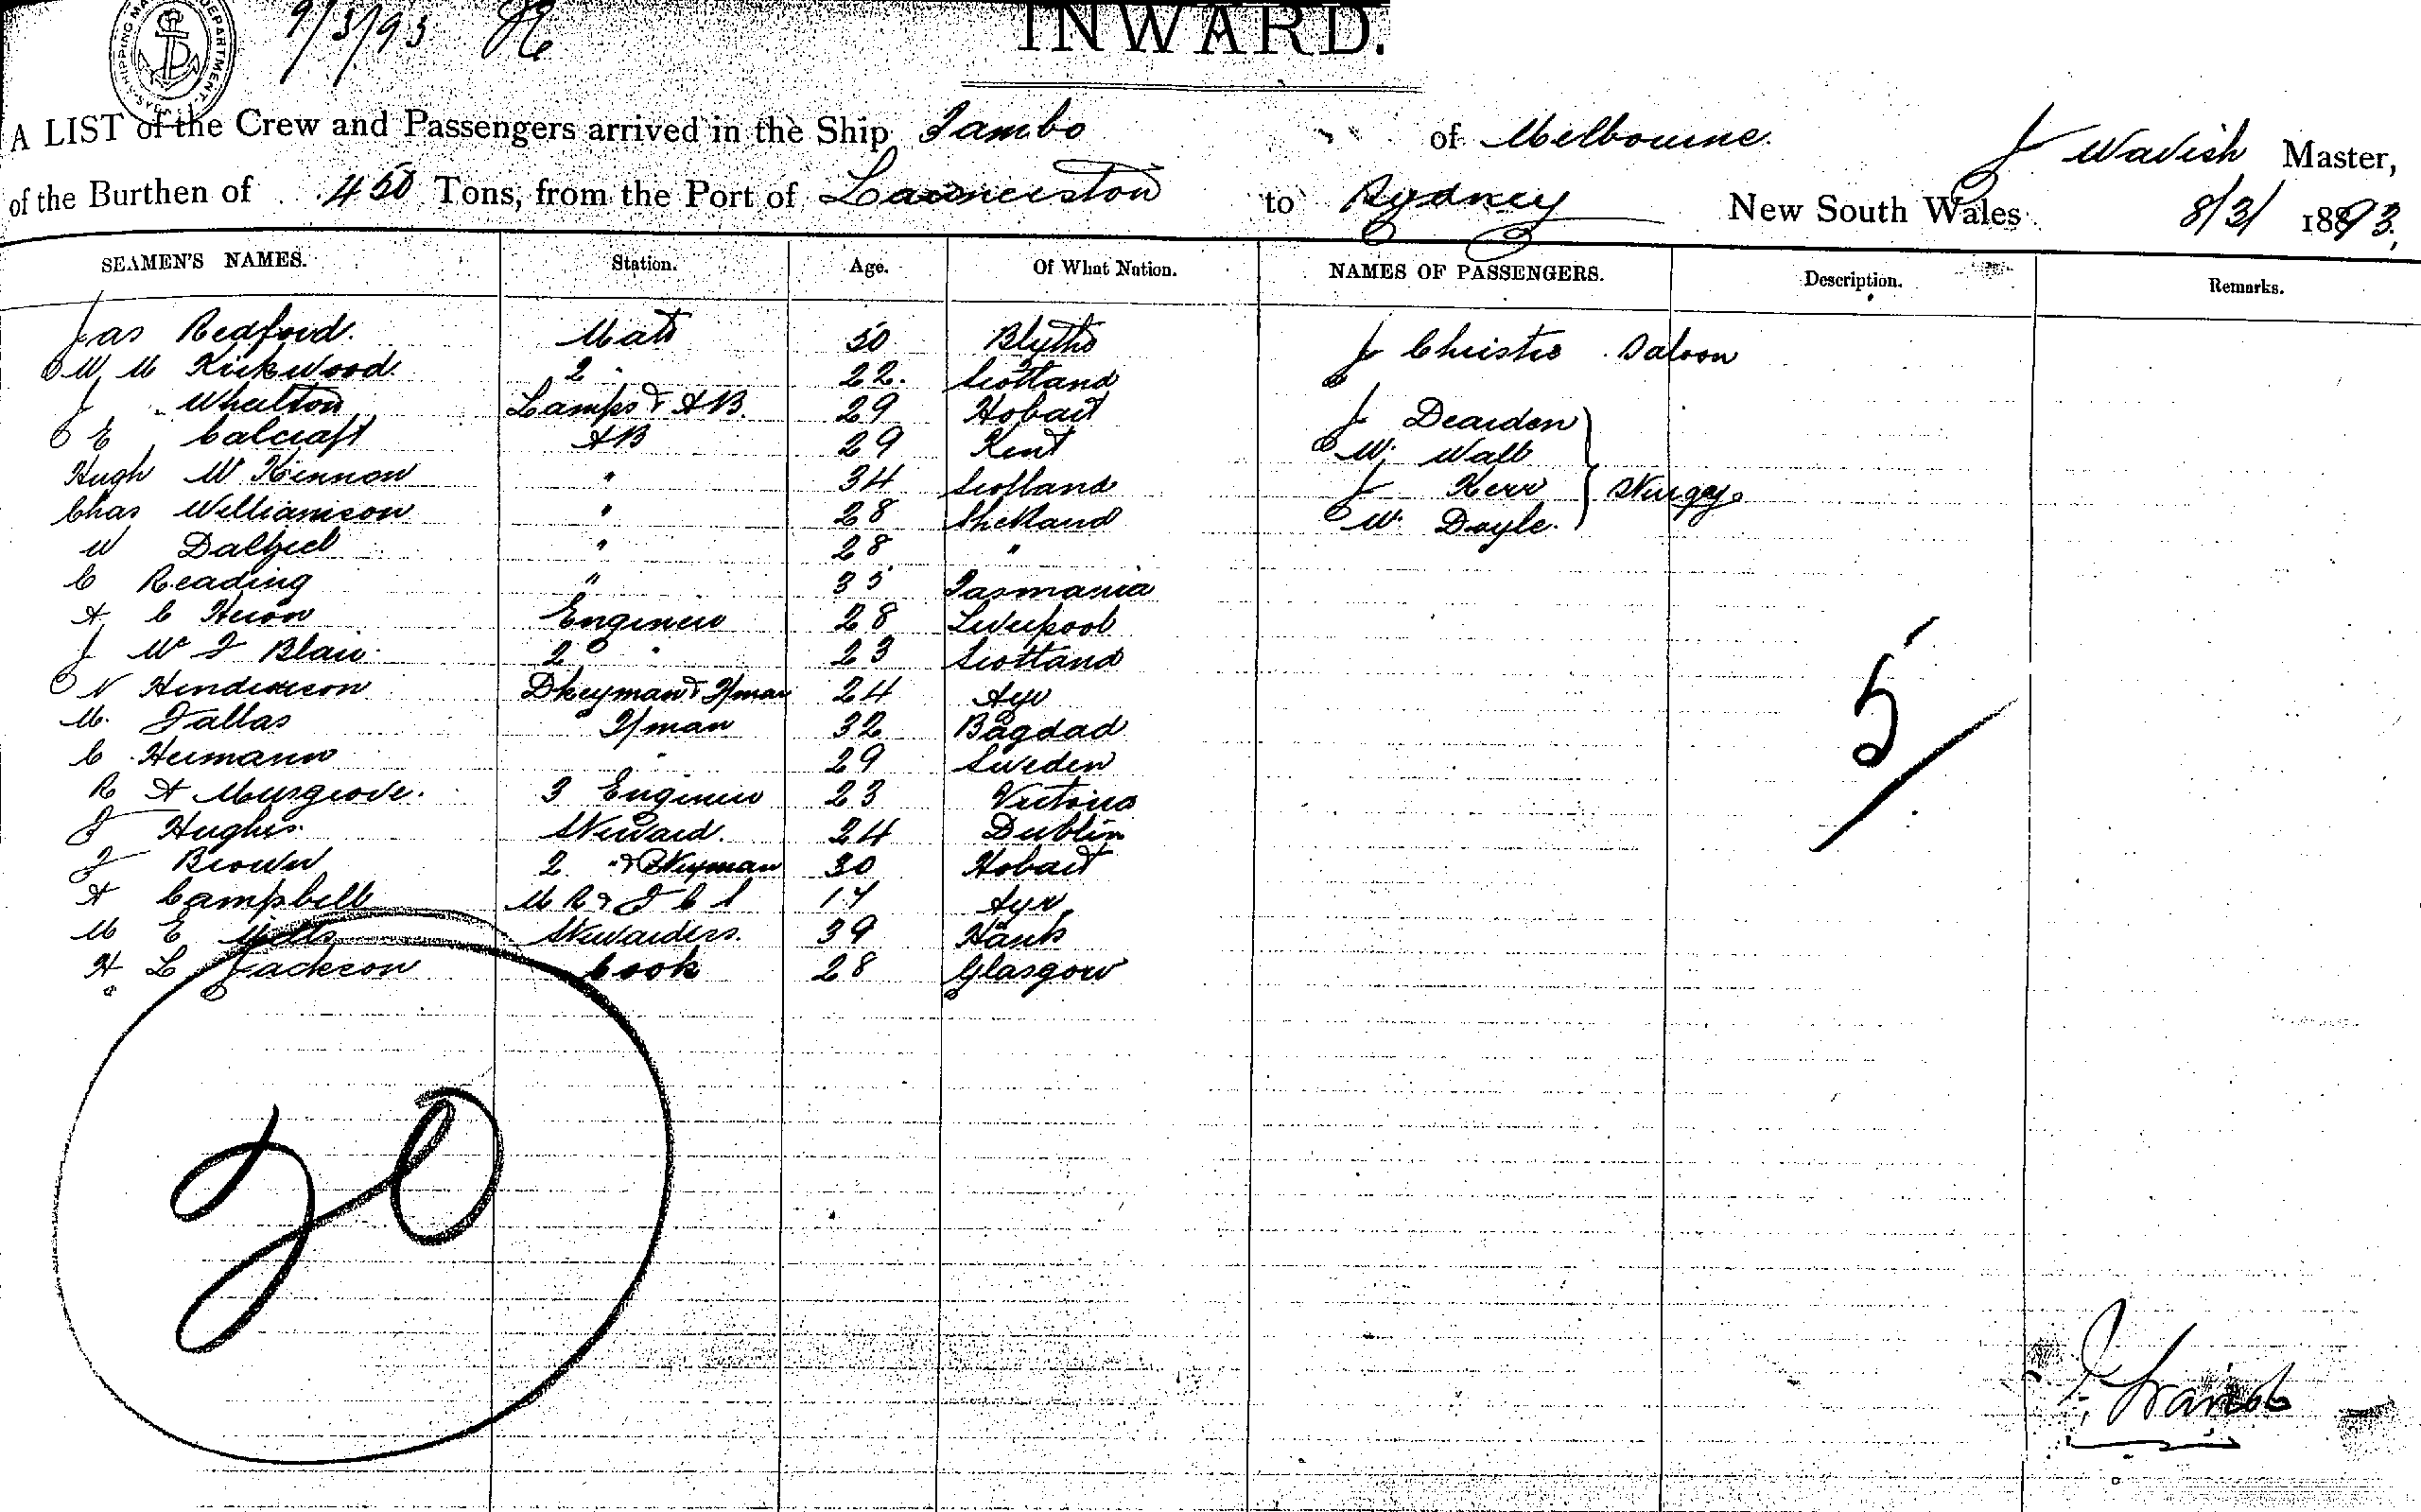 SHIPPING MASTER'S DEPARTMENT
9/3/93
INWARD.
A LIST of the Crew and Passengers arrived in the Ship Tambo of Melbourne. J Wavish Master,
of the Burthen of 450 Tons, from the Port of Launceston to Sydney New South Wales 8/3/ 1893.
SEAMEN'S NAMES. Station. Age. Of What Nation. NAMES OF PASSENGERS. Description. Remarks.
Jas Redford. Mate 50 Blythe J Christie Saloon
W M Kirkwood 2 " 22. Scotland
J Whelton Lamps & AB. 29 Hobart J Deardon
E Calcraft AB 29 Kent W. Wall
Hugh McKinnon " 34 Scotland J Kerr Steerage
Chas Williamson " 28 Shetland W. Doyle.
W Dalziel " 28 "
C Reading " 35 Tasmania
A C Heron Engineer 28 Liverpool
J McF Blair 2 " 23 Scotland
N Henderson Dkeyman & F/man 24 Ayr
M. Fallas F/man 32 Bagdad
C Hermann " 29 Sweden
R A Musgrove. 3 Engineer 23 Victoria
J Hughes. Steward. 24 Dublin
J Brown 2 " & 30 Hobart
A Campbell M R & F C S 17 Ayr
M E Stewardess. 39 Hants
H L Jackson Cook 28 Glasgow
5
20